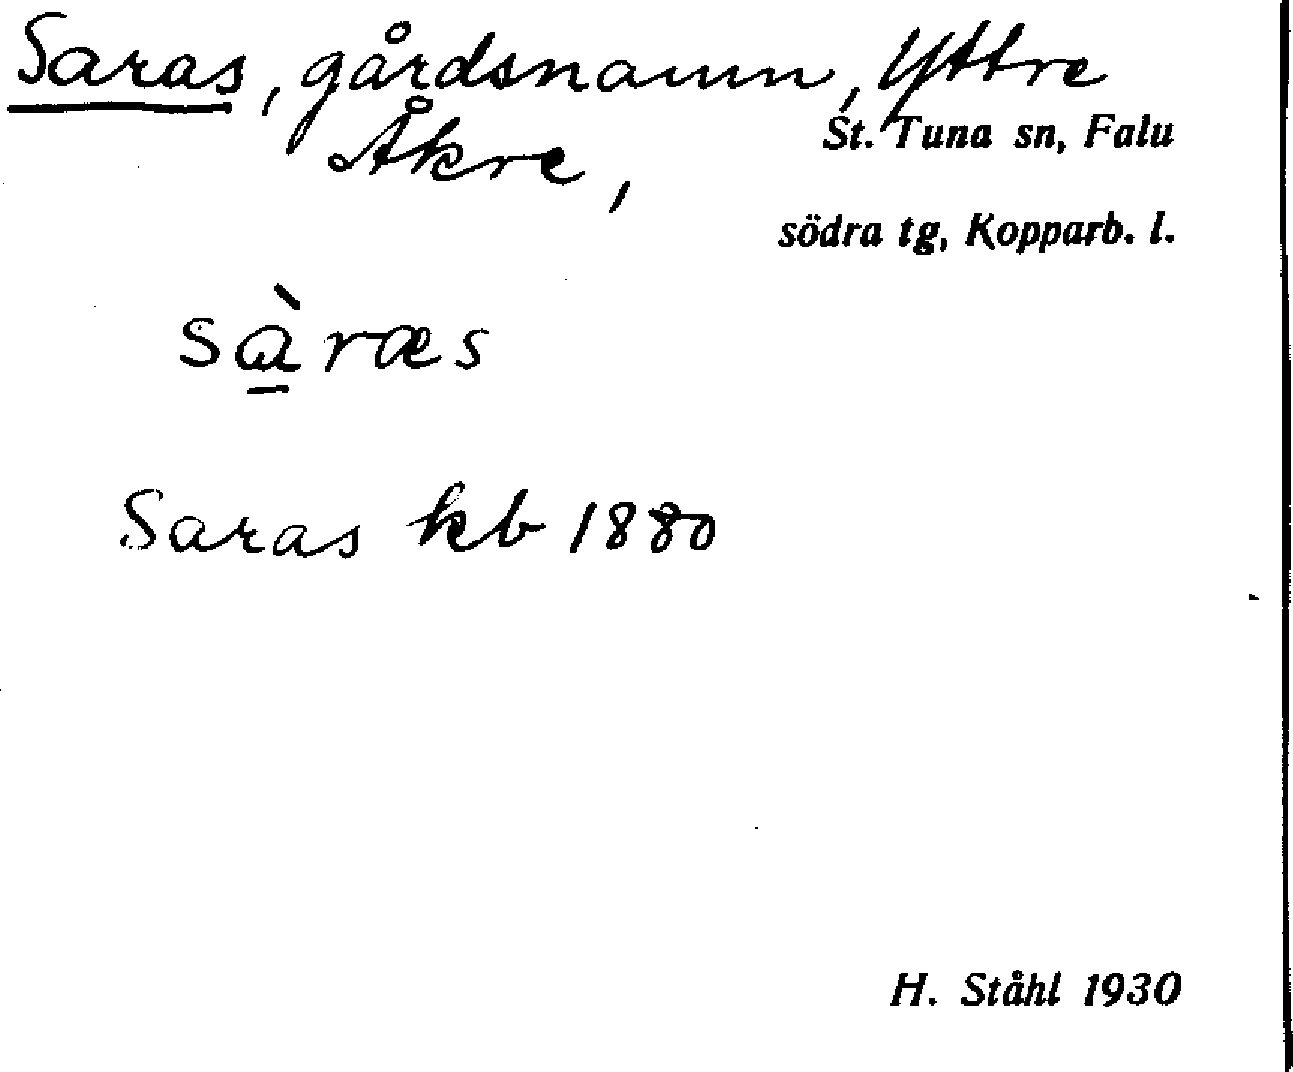 Saras, gårdsnamn, Yttre
Åkre,
St. Tuna sn, Falu
södra tg, Kopparb. l.
sàræs
Saras kb 1880
H. Ståhl 1930